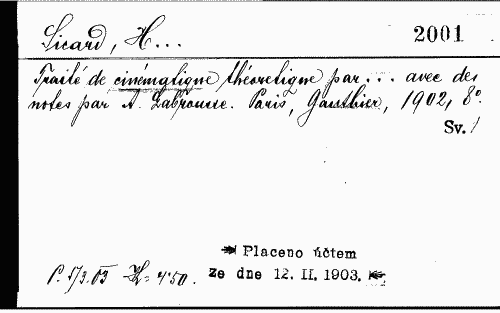 Sicard, H... 2001
Traité de cinématique théoretique par... avec des
notes par A. Labrousse. Paris, Gauthier, 1902, 8°
Sv. 1
Placeno účtem
P. 5/3.03 K = 4.50. ze dne 12. II. 1903.